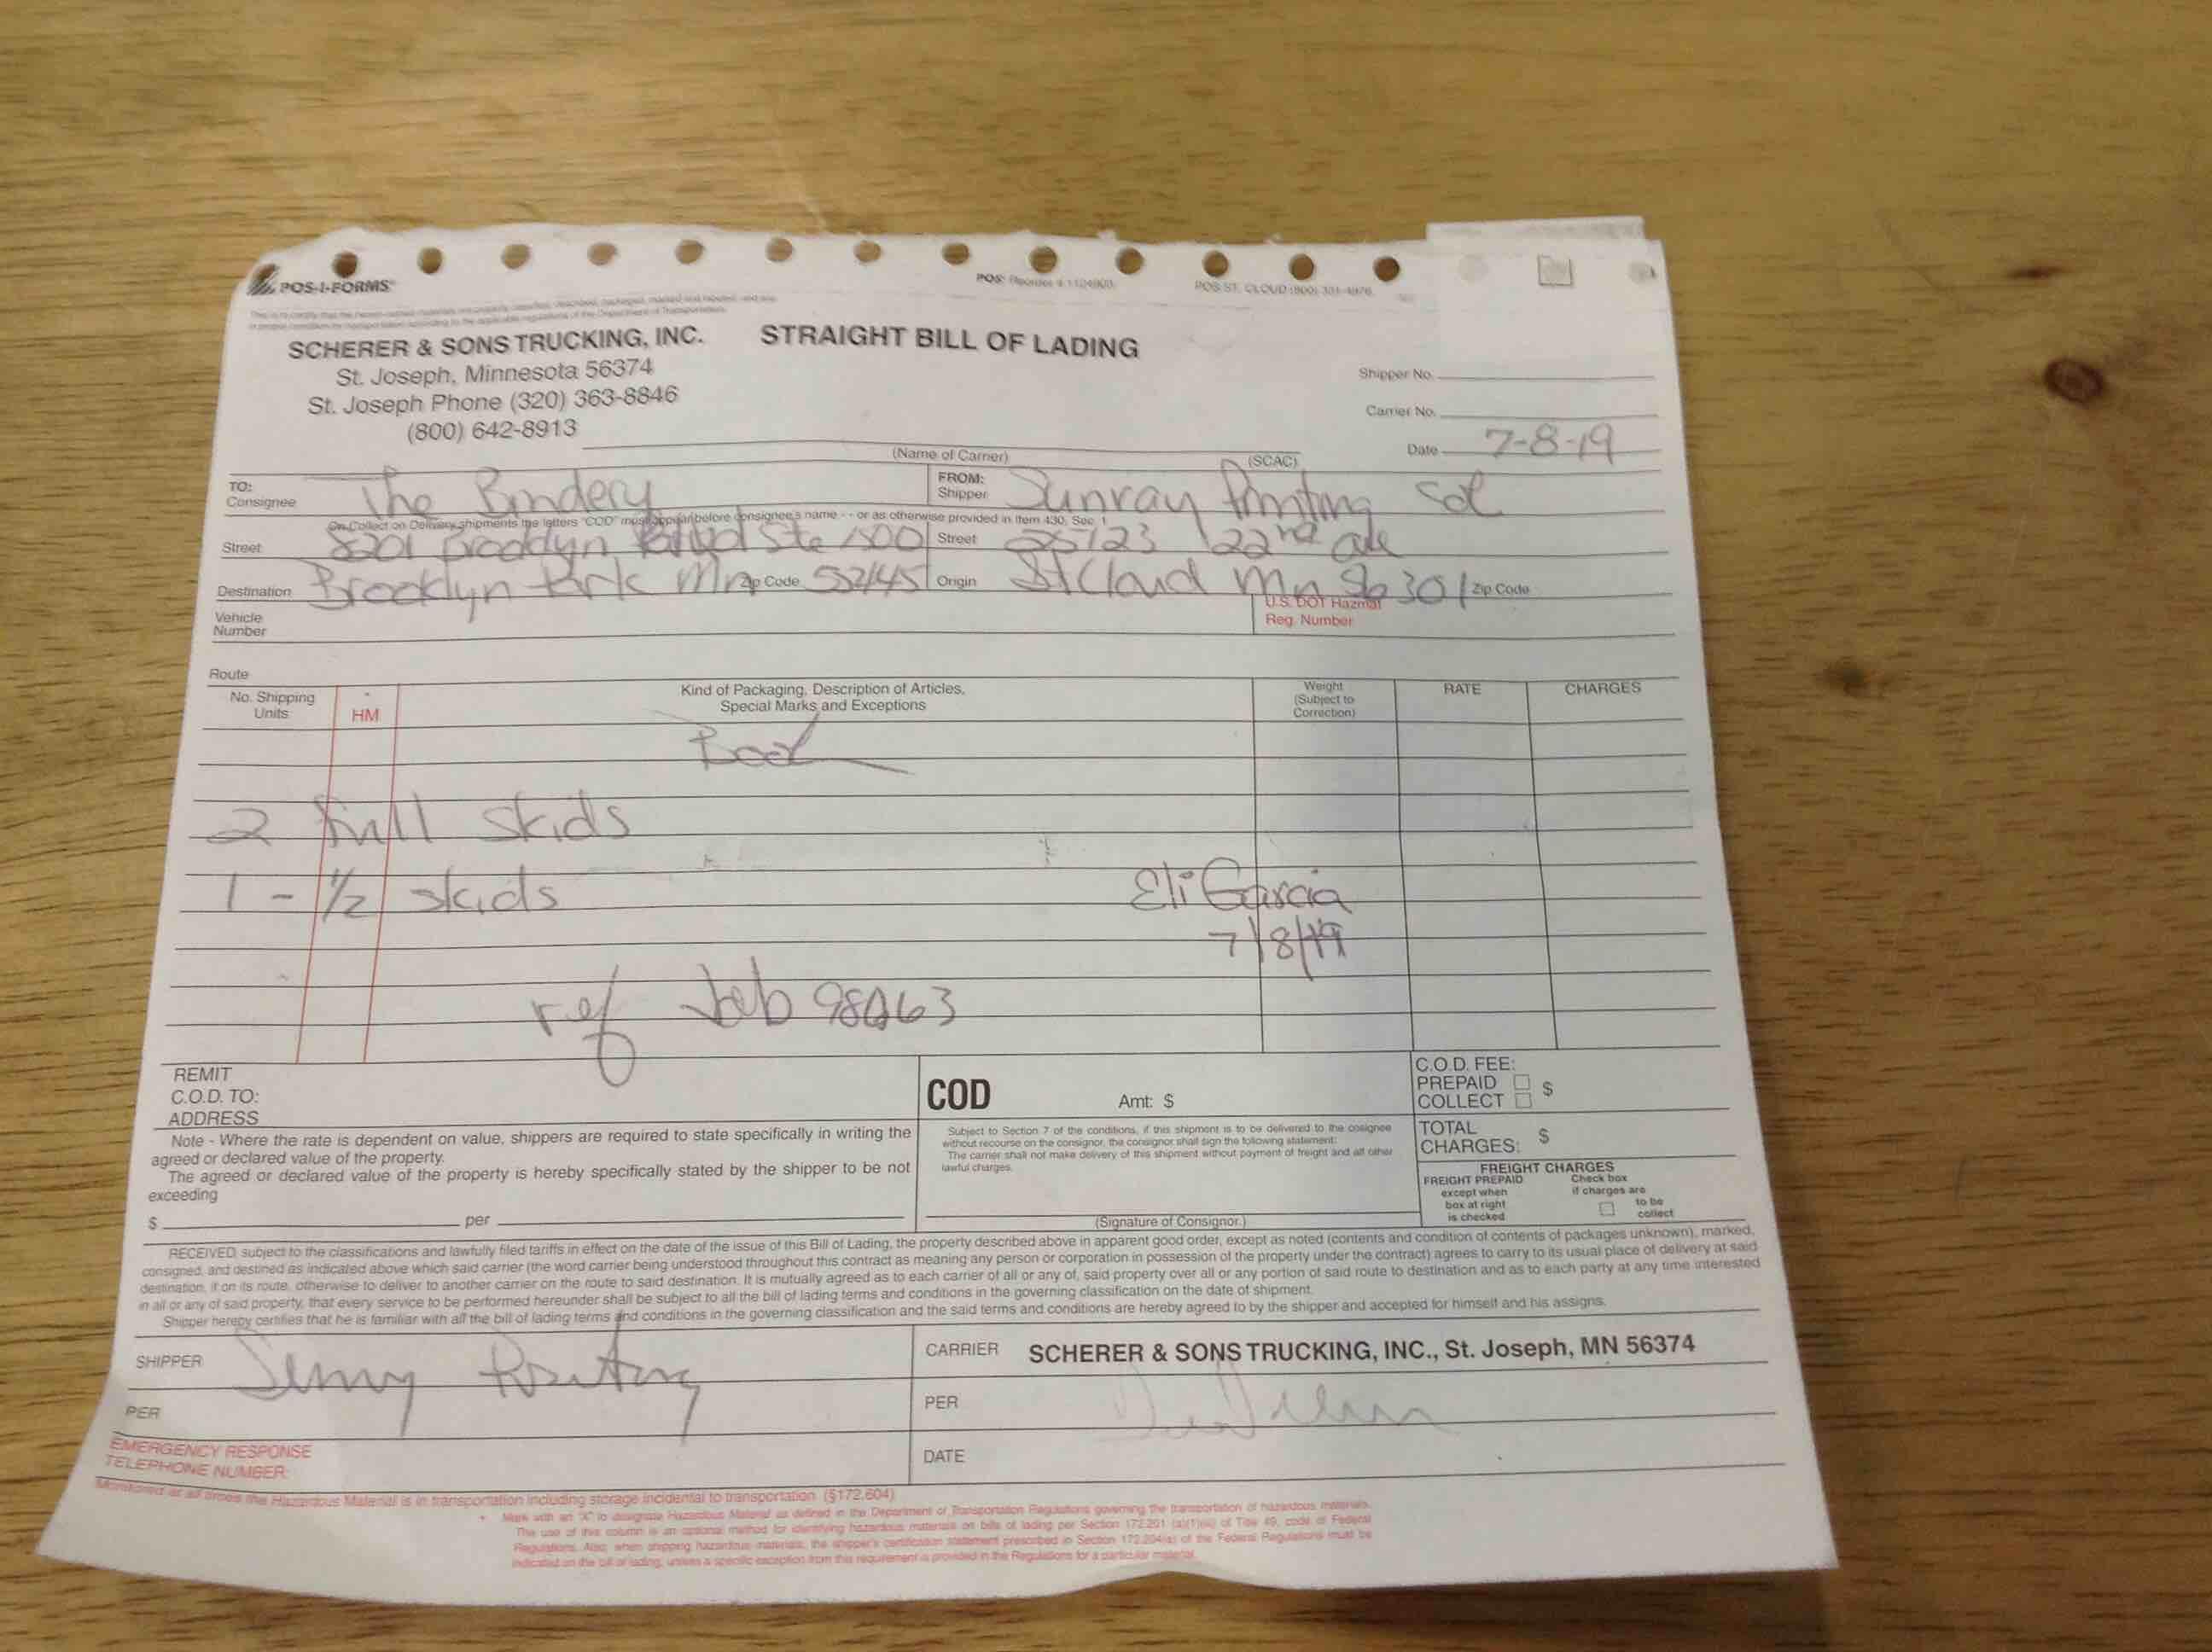 POS-I-FORMS
POS® Reorder # 1124900
POS ST. CLOUD (800)
SCHERER & SONS TRUCKING, INC.
STRAIGHT BILL OF LADING
St. Joseph, Minnesota 56374
St. Joseph Phone (320) 363-8846
(800) 642-8913
Shipper No.
Carrier No.
Date 7-8-19
(Name of Carrier) (SCAC)
TO: Consignee The Bindery
FROM: Shipper Sunray Printing Sol
On Collect on Delivery shipments the letters "COD" must appear before consignee's name - - or as otherwise provided in Item 430, Sec. 1
Street 8201 Brooklyn Blvd Ste 1500
Street 25123 22nd ave
Destination Brooklyn Park Mn Zip Code 55445
Origin St Cloud Mn 56301 Zip Code
Vehicle Number
U.S. DOT Hazmat Reg. Number
Route
No. Shipping Units
HM
Kind of Packaging, Description of Articles, Special Marks and Exceptions
Weight (Subject to Correction)
RATE
CHARGES
2 full skids
1 - 1/2 skids
Eli Garcia
7/8/19
ref Job
REMIT
C.O.D. TO:
ADDRESS
COD
Amt: $
C.O.D. FEE:
PREPAID $
COLLECT
Note - Where the rate is dependent on value, shippers are required to state specifically in writing the
agreed or declared value of the property.
The agreed or declared value of the property is hereby specifically stated by the shipper to be not
exceeding
$ per
Subject to Section 7 of the conditions, if this shipment is to be delivered to the cosignee
without recourse on the consignor, the consignor shall sign the following statement:
The carrier shall not make delivery of this shipment without payment of freight and all other
lawful charges.
(Signature of Consignor.)
TOTAL
CHARGES: $
FREIGHT CHARGES
FREIGHT PREPAID
except when
box at right
is checked
Check box
if charges are
to be
collect
RECEIVED, subject to the classifications and lawfully filed tariffs in effect on the date of the issue of this Bill of Lading, the property described above in apparent good order, except as noted (contents and condition of contents of packages unknown), marked,
consigned, and destined as indicated above which said carrier (the word carrier being understood throughout this contract as meaning any person or corporation in possession of the property under the contract) agrees to carry to its usual place of delivery at said
destination, if on its route, otherwise to deliver to another carrier on the route to said destination. It is mutually agreed as to each carrier of all or any of, said property over all or any portion of said route to destination and as to each party at any time interested
in all or any of said property, that every service to be performed hereunder shall be subject to all the bill of lading terms and conditions in the governing classification on the date of shipment.
Shipper hereby certifies that he is familiar with all the bill of lading terms and conditions in the governing classification and the said terms and conditions are hereby agreed to by the shipper and accepted for himself and his assigns.
SHIPPER
CARRIER SCHERER & SONS TRUCKING, INC., St. Joseph, MN 56374
PER
PER
EMERGENCY RESPONSE
TELEPHONE NUMBER:
DATE
Monitored at all times the Hazardous Material is in transportation including storage incidental to transportation (§172.604)
* Mark with an "X" to designate Hazardous Material as defined in the Department of Transportation Regulations governing the transportation of hazardous materials.
The use of this column is an optional method for identifying hazardous materials on bills of lading per Section 172.201 (a)(1)(iii) of Title 49, code of Federal
Regulations. Also, when shipping hazardous materials, the shipper's certification statement prescribed in Section 172.204(a) of the Federal Regulations must be
indicated on the bill of lading, unless a specific exception from this requirement is provided in the Regulations for a particular material.